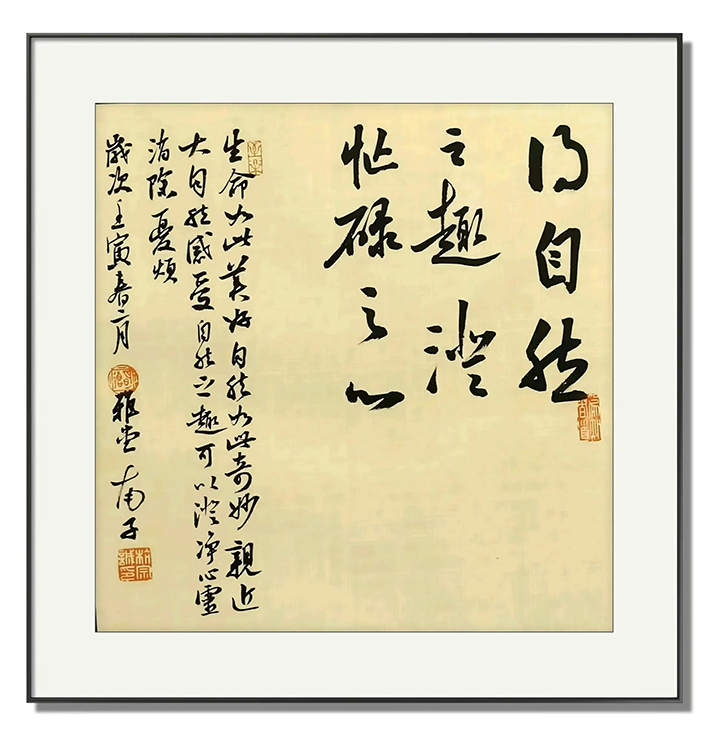 得自然
之趣澄
忙碌之心
生命如此美好自然如此奇妙親近
大自然感受自然之趣可以澄净心靈
消除憂煩
歲次壬寅春二月 雅堂南子